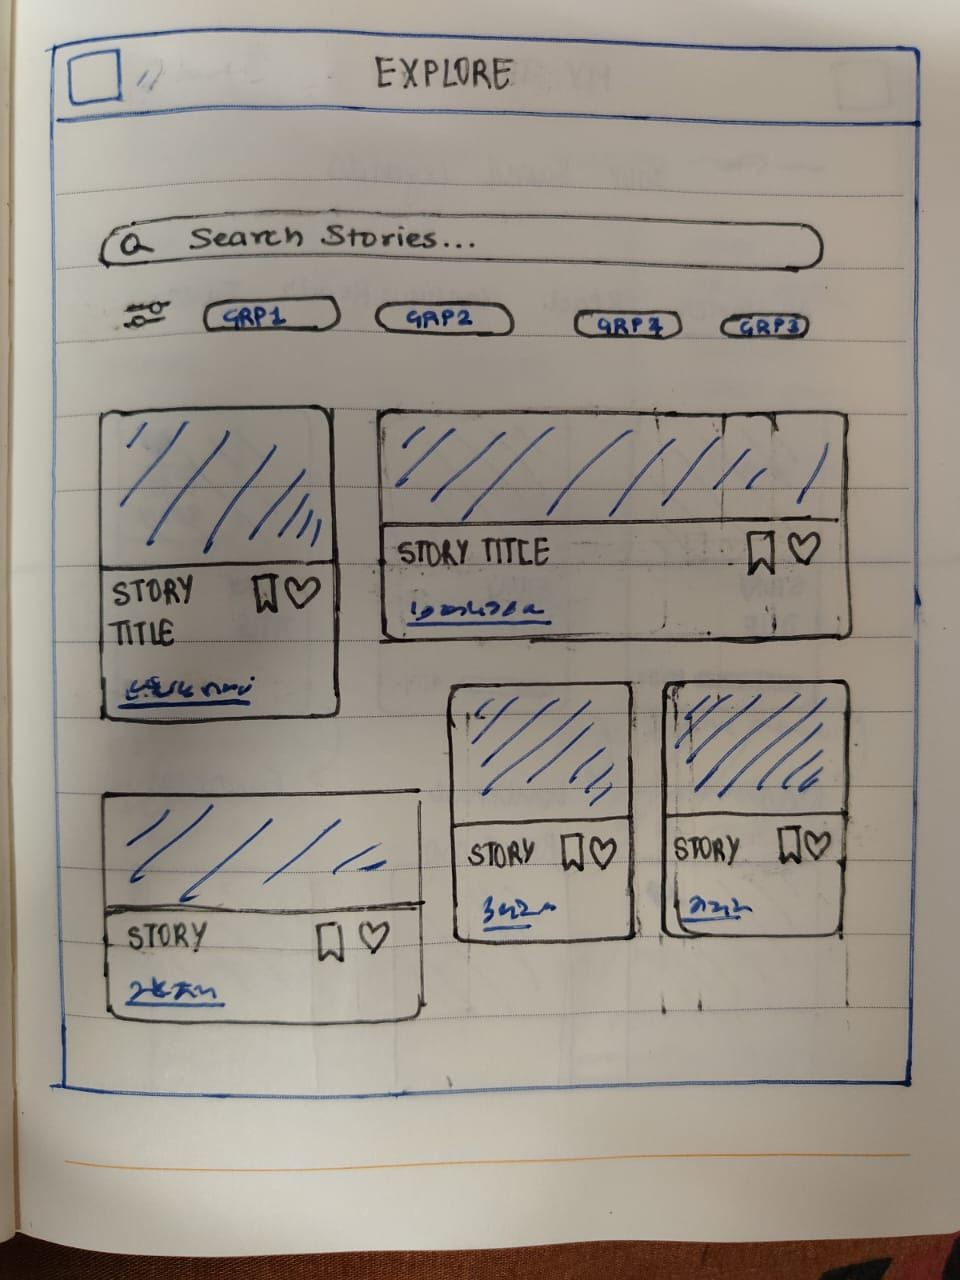 EXPLORE
Search Stories...
GRP1 GRP2 GRP4 GRP3
STORY
TITLE
STORY TITLE
STORY
STORY
STORY